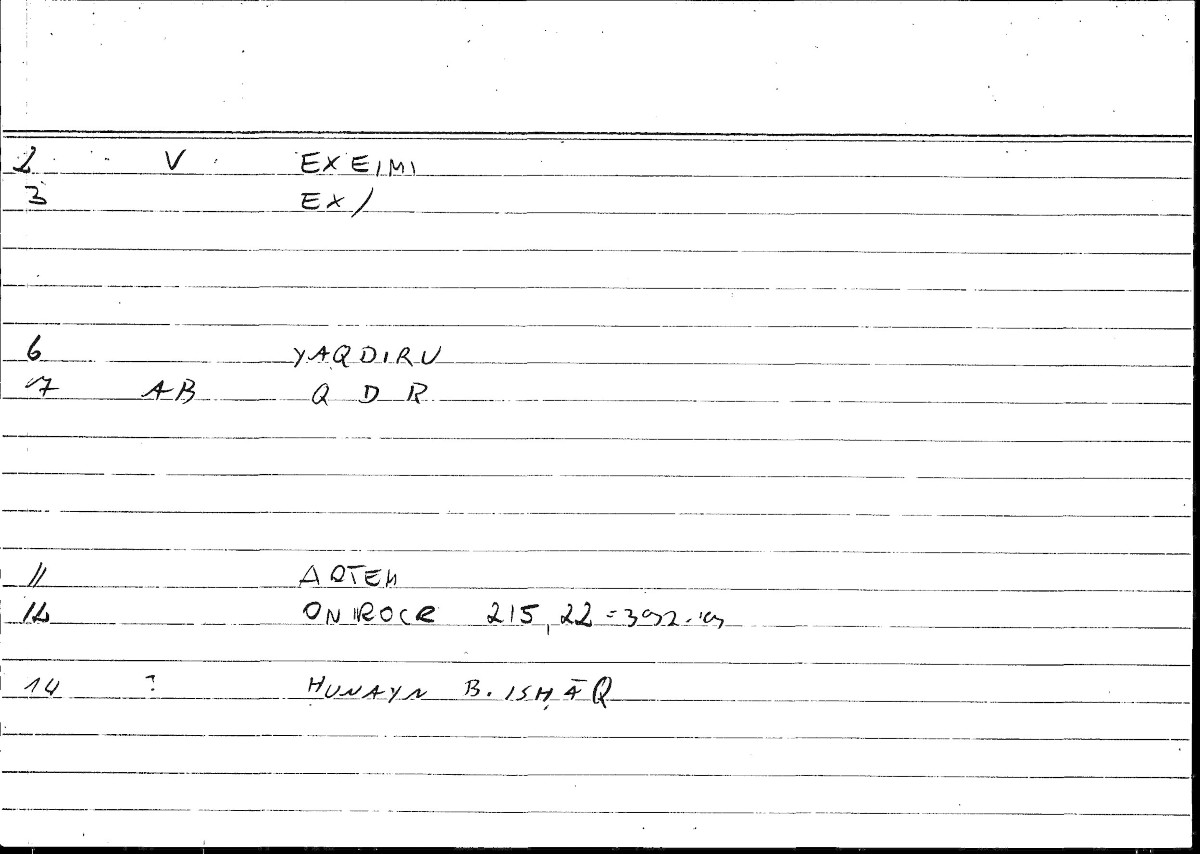 2 V EXEIMI
3 EX/
6 YAQDIRU
7 AB Q D R
11 ARTEM
12 ONIROCR 215,22 = 392.19
14 ? ḤUNAYN B. ISḤĀQ